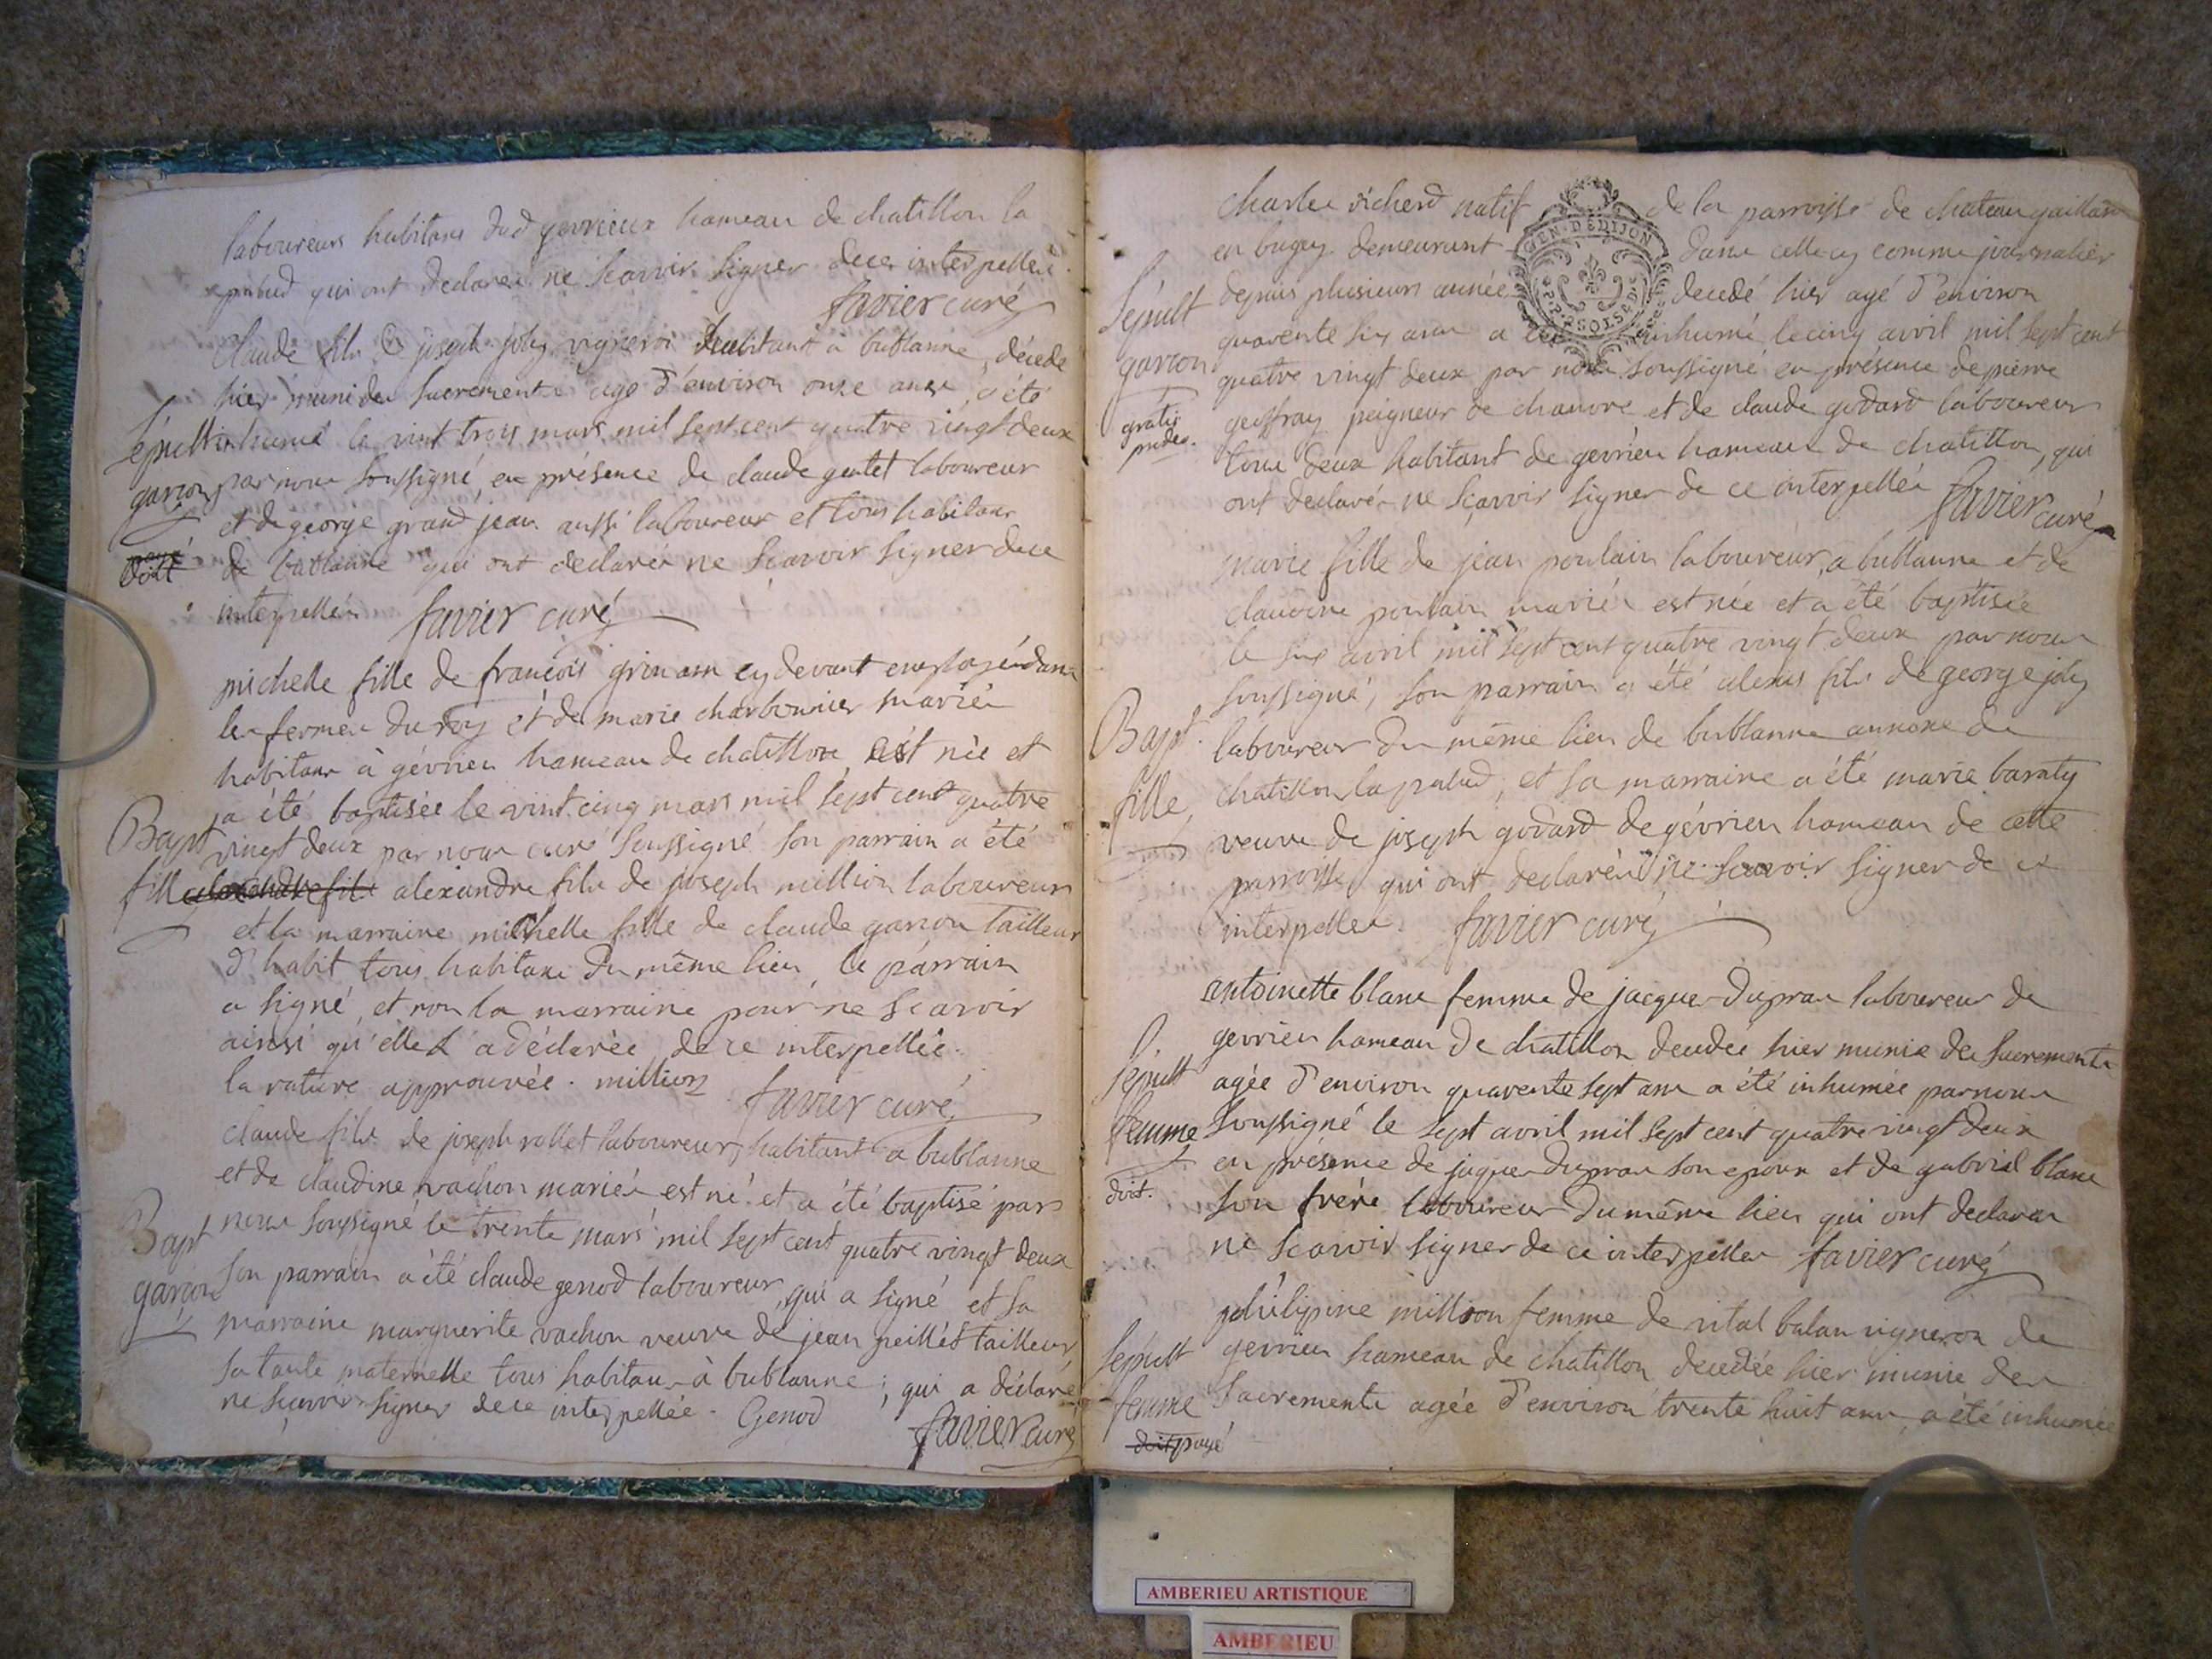 laboureurs habitans dud gevrieux hameau de chatillon la
palud qui ont declarés ne scavoir signer de ce interpellés.
favier curé
claude fils de joseph joly vigneron habitant a bublanne, décedé
hier muni des sacrements agé d'environ onze ans, a été
Sépult inhumé le vint trois mars mil sept cent quatre vingt deux
garcon par nous soussigné, en présence de claude gutet laboureur
et de george grand jean aussi laboureur et tous habitans
payé
doit
de bublanne qui ont declarés ne scavoir signer de ce
interpellés favier curé
michelle fille de françois grimann cy devant employé dans
les fermes du roy et de marie charbonnier mariés
habitans à gévrieu hameau de chatillon est née et
a été baptisée le vint cinq mars mil sept cent quatre
Bapt vingt deux par nous curé soussigné son parrain a été
fille alexandre fils alexandre fils de joseph million laboureur
et la marraine michelle fille de claude garcon tailleur
d'habit tous habitans du même lieu, le parrain
a signé, et non la marraine pour ne scavoir
ainsi qu'elle a déclarée de ce interpellée.
la rature approuvée. million favier curé
claude fils de joseph rollet laboureur, habitant a bublanne
et de claudine vachon mariés est né et a été baptisé par
Bapt nous soussigné le trente mars mil sept cent quatre vingt deux
garcon son parrain a été claude genod laboureur, qui a signé et sa
marraine marguerite vachon veuve de jean peillet tailleur,
sa tante maternelle tous habitans à bublanne; qui a déclaré
ne scavoir signer de ce interpellée. Genod favier curé
charles richerd natif de la parroisse de chateau gaillard
en bugey demeurant dans celle cy comme journalier
GEN. DE DIJON
Sépult depuis plusieurs années decedé hier agé d'environ
quarente six ans a été inhumé le cinq avril mil sept cent
garcon quatre vingt deux par nous soussigné en présence de pierre
gratis
pro deo.
geoffray peigneur de chanvre et de claude godard laboureur
tous deux habitant de gevrieu hameau de chatillon, qui
ont declarés ne scavoir signer de ce interpellés favier curé
marie fille de jean poulain laboureur, a bublanne et de
claudine poulain mariés est née et a été baptisée
le six avril mil sept cent quatre vingt deux par nous
soussigné, son parrain a été alexis fils de george joly
Bapt. laboureur du même lieu de bublanne annexe de
fille chatillon la palud, et sa marraine a été marie baraty
veuve de joseph godard de gévrieu hameau de cette
parroisse, qui ont declarés ne scavoir signer de ce
interpellés. favier curé
antoinette blanc femme de jacques dupras laboureur de
gevrieu hameau de chatillon decedée hier munie des sacrements
Sépult agée d'environ quarente sept ans a été inhumée par nous
femme soussigné le sept avril mil sept cent quatre vingt deux
doit. en présence de jaques dupras son epoux et de gabriel blanc
son frére laboureur du même lieu qui ont declarés
ne scavoir signer de ce interpellés favier curé
philipine million femme de vital balan vigneron de
Sépult gevrieu hameau de chatillon decedée hier munie des
femme sacrements agée d'environ trente huit ans a été inhumée
doit payé
AMBERIEU ARTISTIQUE
AMBERIEU